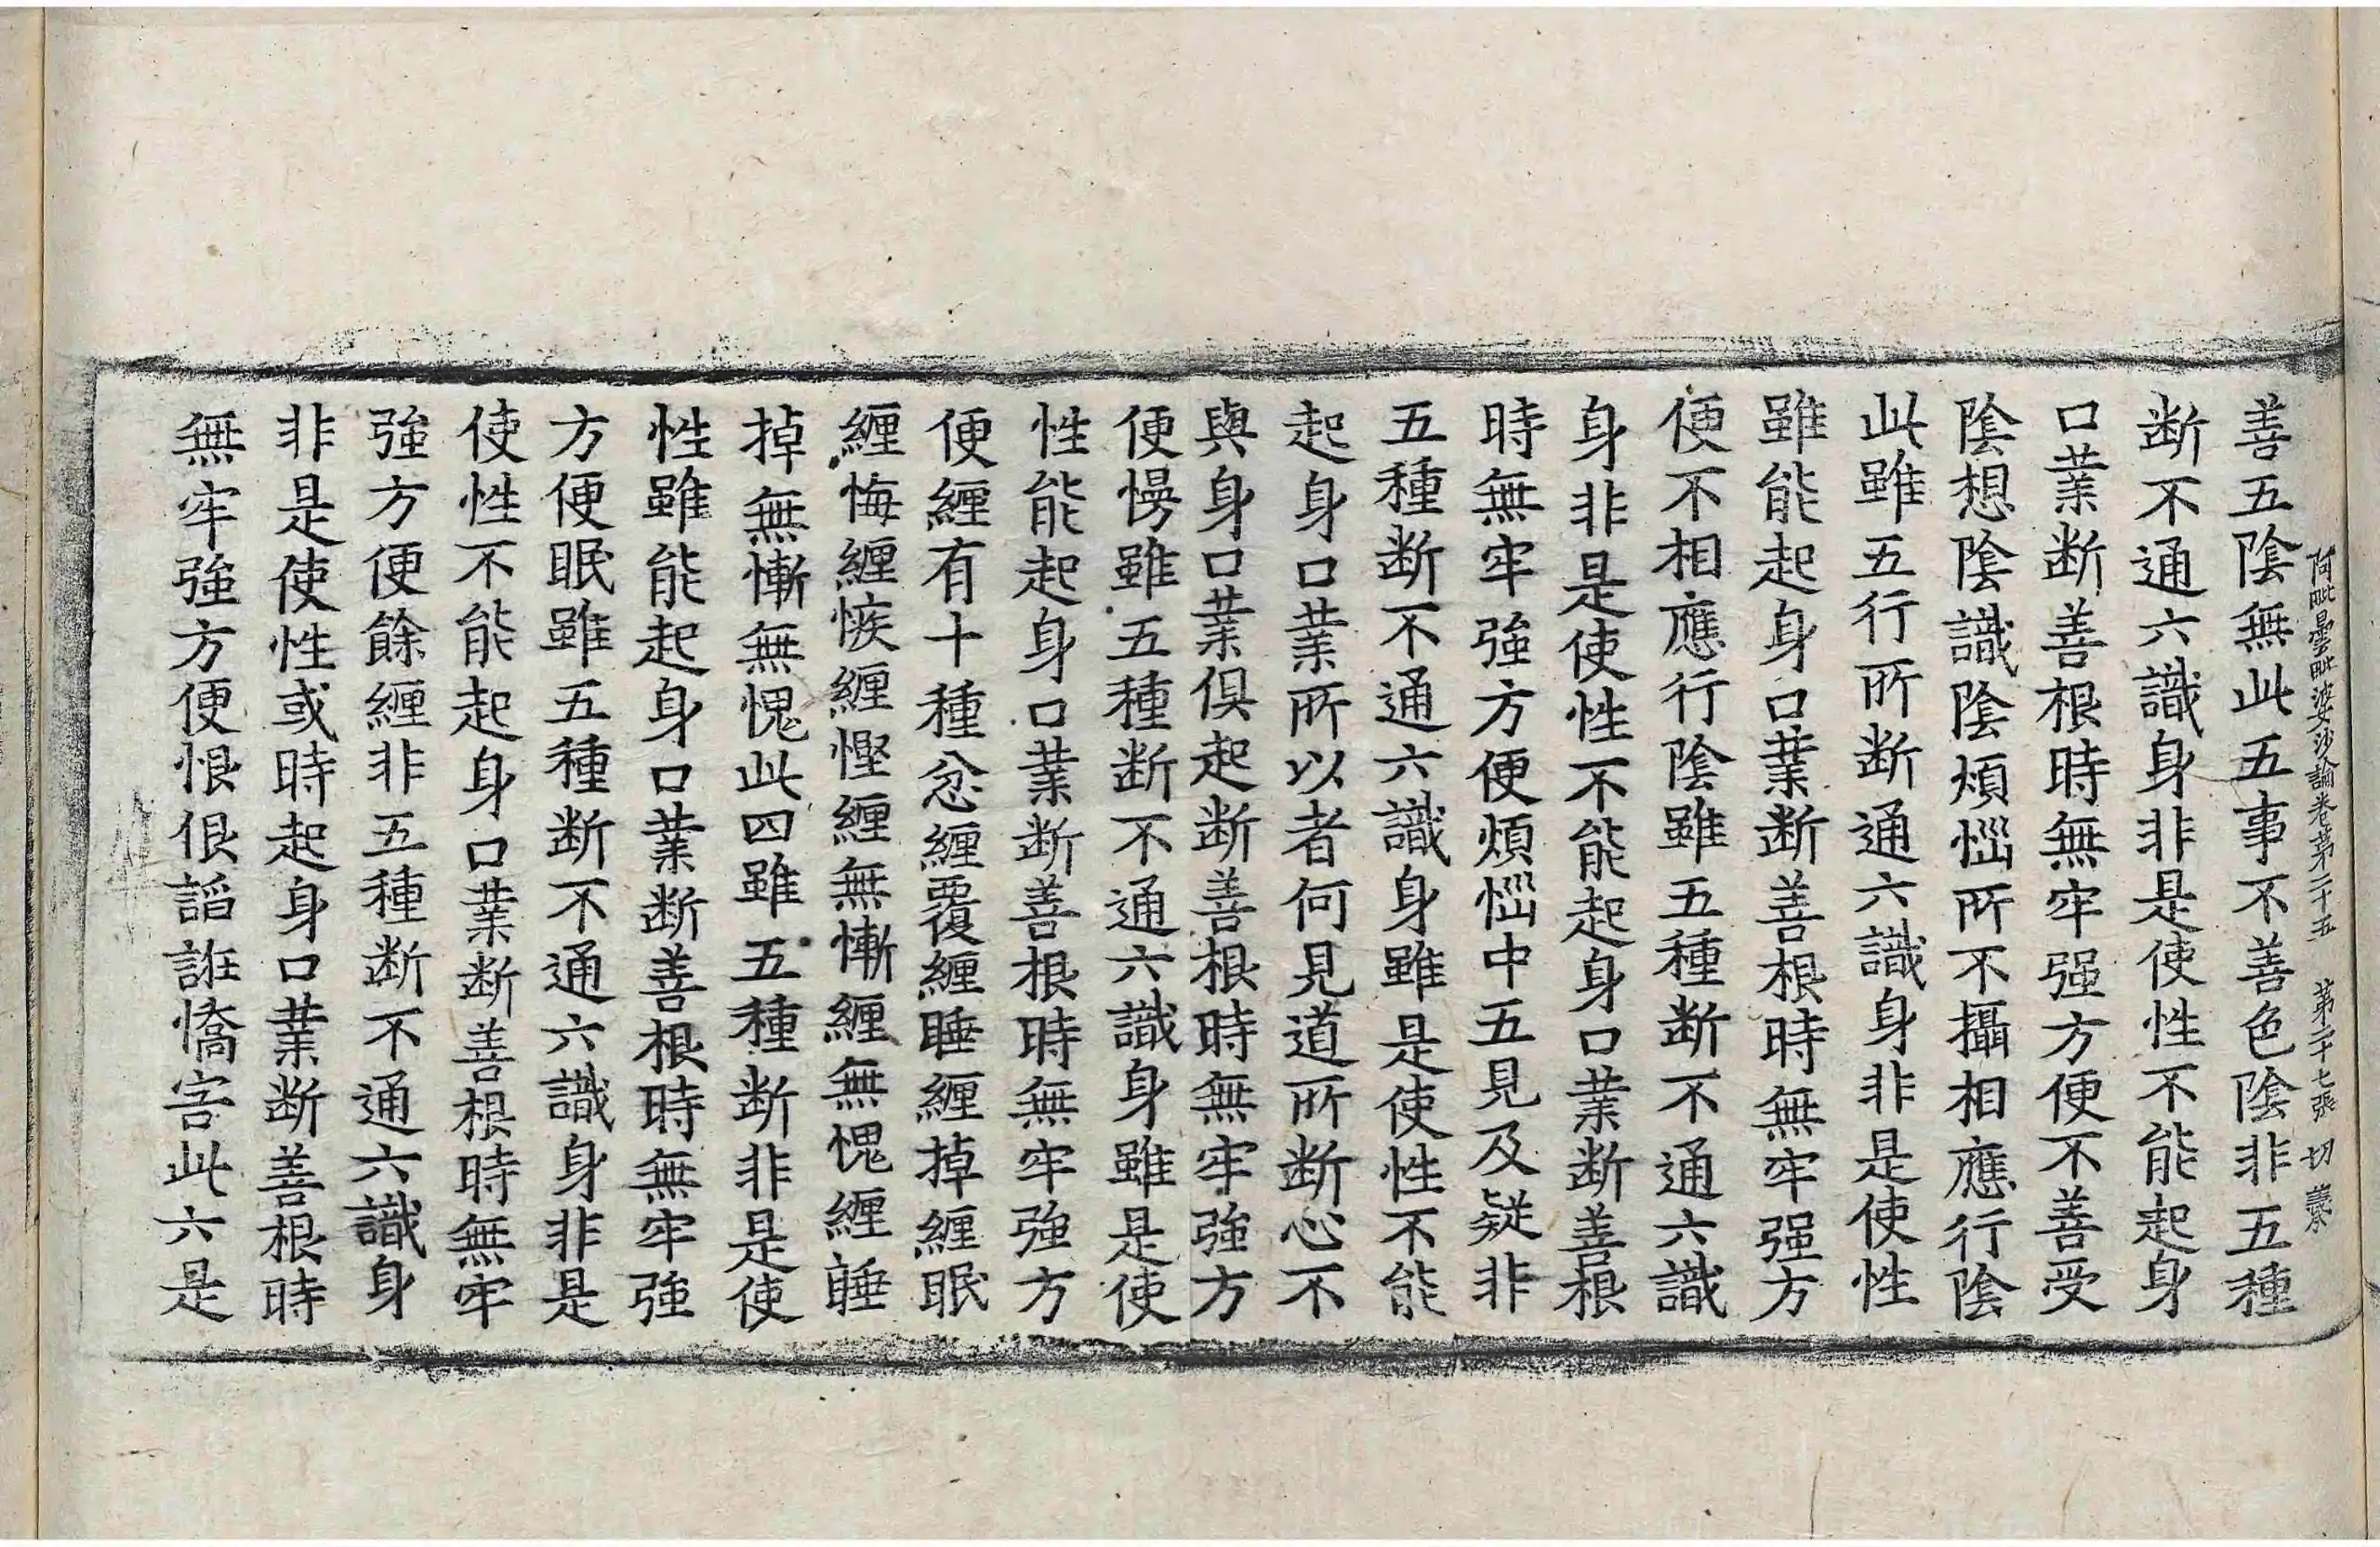 阿毗曇毗婆沙論卷第二十五　第二十七張　切
善五陰無此五事不善色陰非五種
断不通六識身非是使性不能起身
口業断善根時無牢强方便不善受
陰想陰識陰煩惱所不攝相應行陰
此雖五行所断通六識身非是使性
雖能起身口業断善根時無牢强方
便不相應行陰雖五種断不通六識
身非是使性不能起身口業断善根
時無牢強方便煩惱中五見及疑非
五種断不通六識身雖是使性不能
起身口業所以者何見道所断心不
與身口業俱起断善根時無牢強方
便慢雖五種断不通六識身雖是使
性能起身口業断善根時無牢強方
便纏有十種忿纏覆纏睡纏掉纏眠
纏悔纏慳纏無慚纏無愧纏睡
掉無慚無愧此四雖五種断非是使
性雖能起身口業断善根時無牢強
方便眠雖五種断不通六識身非是
使性不能起身口業断善根時無牢
強方便餘纏非五種断不通六識身
非是使性或時起身口業断善根時
無牢強方便恨佷謟誑憍害此六是